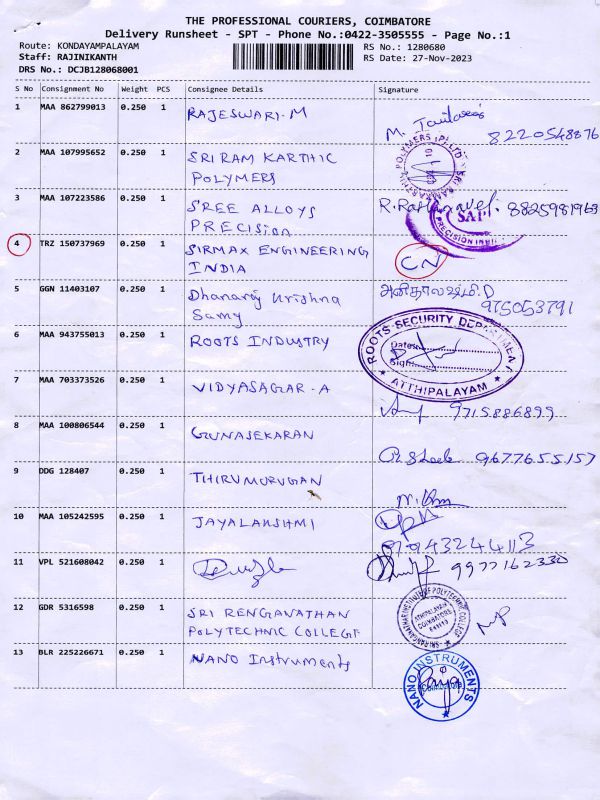 THE PROFESSIONAL COURIERS, COIMBATORE
Delivery Runsheet - SPT - Phone No.:0422-3505555 - Page No.:1
Route: KONDAYAMPALAYAM
Staff: RAJINIKANTH
DRS No.: DCJB128068001
RS No.: 1280680
RS Date: 27-Nov-2023
S No Consignment No Weight PCS Consignee Details Signature
1 MAA 862799013 0.250 1 RAJESWARI-M M. 8220548876
2 MAA 107995652 0.250 1 SRI RAM KARTHIC
POLYMERS
3 MAA 107223586 0.250 1 SREE ALLOYS 8825981963
PRECISION SAPI
PRECISION
4 TRZ 150737969 0.250 1 SIRMAX ENGINEERING
INDIA CN
5 GGN 11403107 0.250 1 Dhanaraj Krishna
Samy 975053791
6 MAA 943755013 0.250 1 ROOTS INDUSTRY
ROOTS SECURITY DEPARTMENT
Date:
Sign:
ATTHIPALAYAM
7 MAA 703373526 0.250 1 VIDYASAGAR-A
9715886899
8 MAA 100806544 0.250 1 GUNASEKARAN
9677655157
9 DDG 128407 0.250 1 THIRUMURUGAN
10 MAA 105242595 0.250 1 JAYALAKSHMI
11 VPL 521608042 0.250 1 9977162330
12 GDR 5316598 0.250 1 SRI RENGANATHAN
POLYTECHNIC COLLEGE
ATHIPALAYAM
COIMBATORE
13 BLR 225226671 0.250 1 NANO Instruments
NANO INSTRUMENTS
Coimbatore